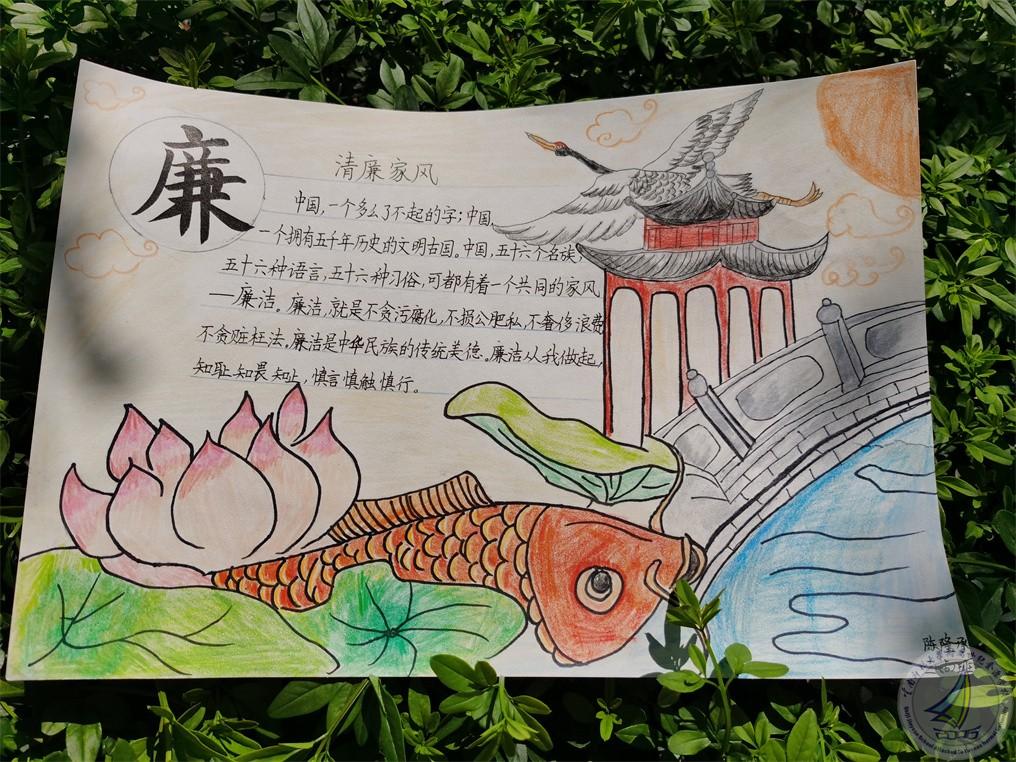 廉
清廉家风
中国,一个多么了不起的字;中国,
一个拥有五千年历史的文明古国。中国,五十六个名族,
五十六种语言,五十六种习俗,可都有着一个共同的家风
——廉洁。廉洁,就是不贪污腐化,不损公肥私,不奢侈浪费
不贪赃枉法。廉洁是中华民族的传统美德。廉洁从我做起,
知耻知畏知止,慎言慎触慎行。
陈隆